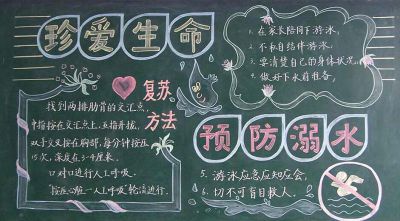 珍爱生命
复苏
方法
找到两排肋骨的交汇点,
中指按在交汇点上,五指并拢,
双手交叉按在胸部,每分钟按压
15次,深度在3-4厘米.
口对口进行人工呼吸.
按压心脏一人工呼吸轮流进行.
1.在家长陪同下游泳,
2.不私自结伴游泳,
3.要清楚自己的身体状况,
4.做好下水前准备,
预防溺水
5.游泳应急应知应会,
6.切不可盲目救人.